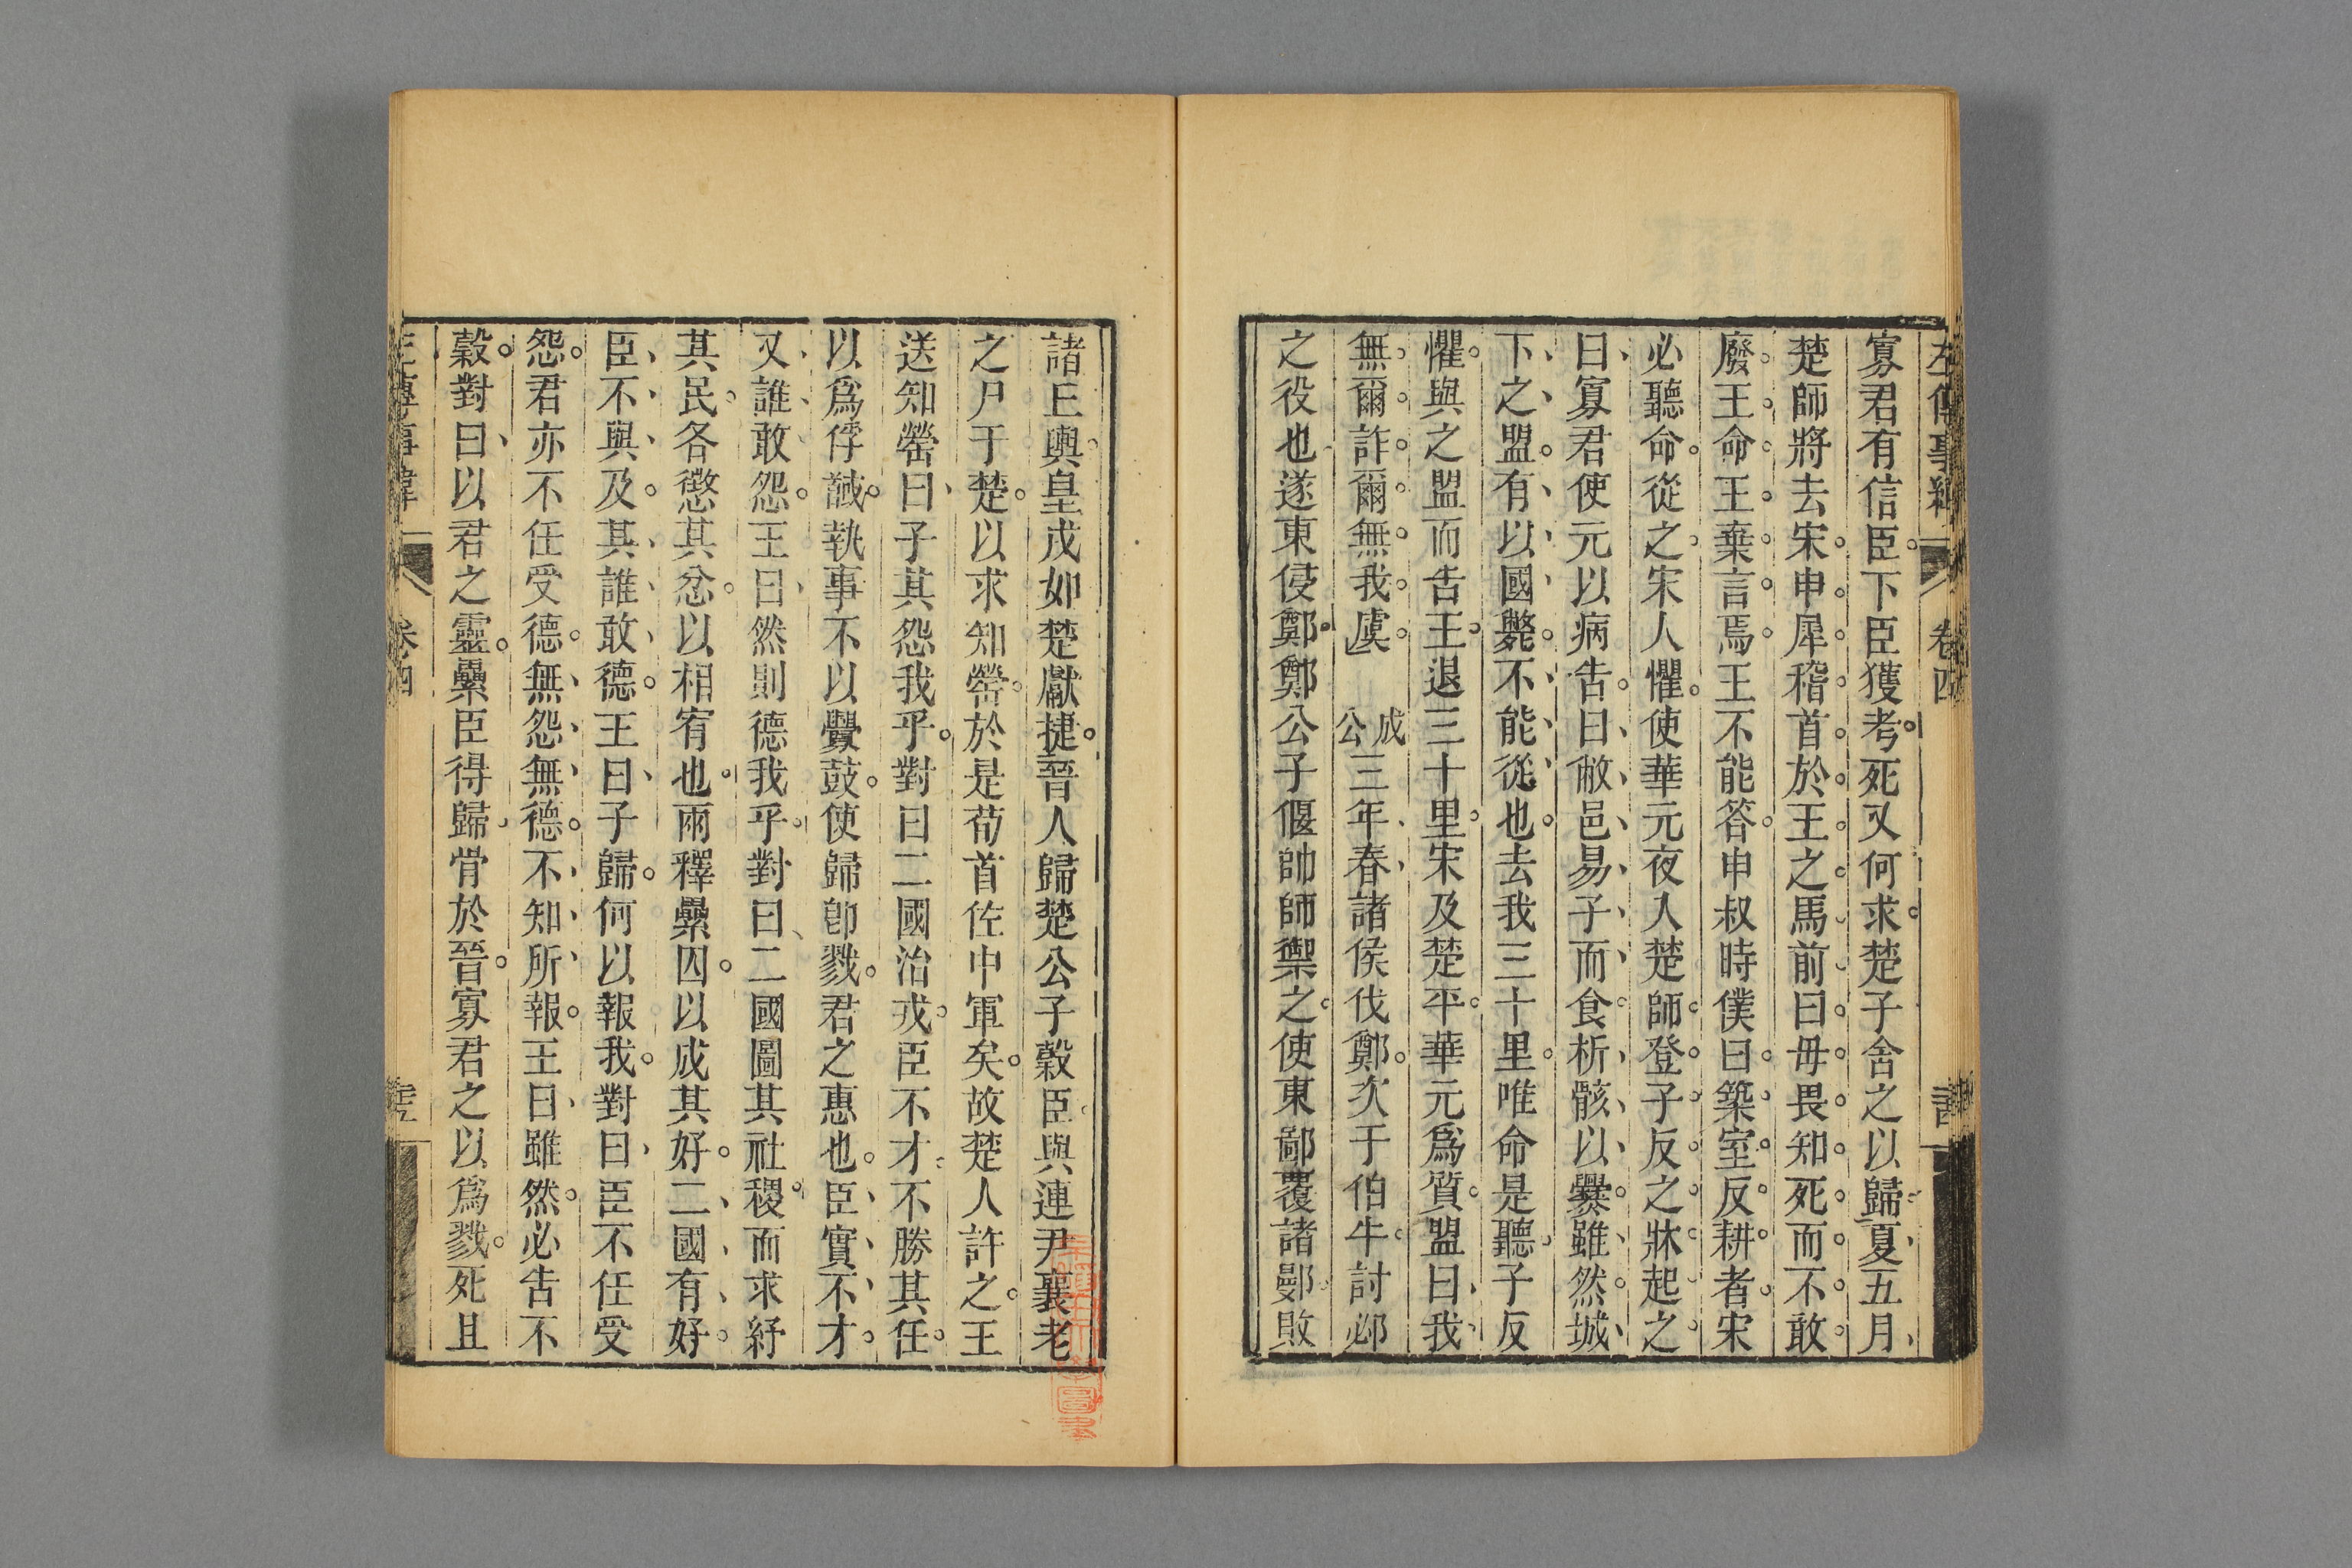 左傳事緯 卷四
寡君有信臣下臣獲考死又何求楚子舍之以歸夏五月
楚師將去宋申犀稽首於王之馬前曰毋畏知死而不敢
廢王命王棄言焉王不能答申叔時僕曰築室反耕者宋
必聽命從之宋人懼使華元夜入楚師登子反之牀起之
曰寡君使元以病告曰敝邑易子而食析骸以爨雖然城
下之盟有以國斃不能從也去我三十里唯命是聽子反
懼與之盟而告王退三十里宋及楚平華元爲質盟曰我
無爾詐爾無我虞 成公三年春諸侯伐鄭次于伯牛討邲
之役也遂東侵鄭鄭公子偃帥師禦之使東鄙覆諸鄤敗
諸丘輿皇戌如楚獻捷晉人歸楚公子穀臣與連尹襄老
之尸于楚以求知罃於是荀首佐中軍矣故楚人許之王
送知罃曰子其怨我乎對曰二國治戎臣不才不勝其任
以爲俘馘執事不以釁鼓使歸卽戮君之惠也臣實不才
又誰敢怨王曰然則德我乎對曰二國圖其社稷而求紓
其民各懲其忿以相宥也兩釋纍囚以成其好二國有好
臣不與及其誰敢德王曰子歸何以報我對曰臣不任受
怨君亦不任受德無怨無德不知所報王曰雖然必告不
穀對曰以君之靈纍臣得歸骨於晉寡君之以爲戮死且
左傳事緯 卷四